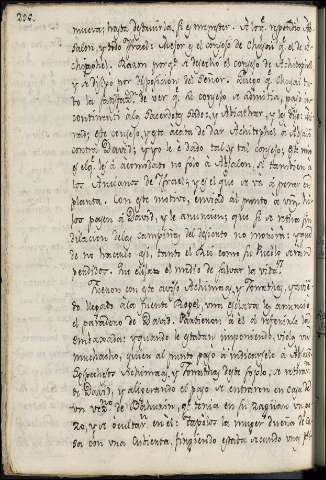 206.
nueva, hasta destruirla, si es menester. A lo q.e respondio Ab
salon, y todo Israel: Mejor es el consejo de Chusai q.e el de A
chitophel. Razon porq.e se desecho el consejo de Achitophel
y se dispuso por disposicion del Señor. Luego q.e Chusai tu
bo la satisfaccion de ver q.e su consejo se admitia, paso in
continenti a los Sacerdotes Sadoc, y Abiathar, y les dijo:
este consejo, y este acaba de dar Achitophel a Absalon
contra David; y yo le e dado tal y tal consejo, este mio
es el q.e le á acomodado no solo a Absalon, si tambien a
los Ancianos de Israel; y es el que se va a poner en
planta. Con este motivo, enviad al punto a uno, hi
jos pasen a David, y le anuncien; que si se retira sin
dilacion de las campiñas del desierto no morira: y que
de no hacerlo asi, tanto el Rei como su Pueblo seran
perdidos. Que elija el medio de salvar la vida.
Fueron con este aviso Achimaas, y Jonathas, y havien
do llegado a la fuente Rogel, una esclava les anuncio
el paradero de David. Partieron a él a referirle la
embajada: y quando le estaban imponiendo, violo un
muchacho, quien al punto paso a indicarselo a Absalon
Achimaas, y Jonathas de este soplo, se retiraron
de David, y aligerando el paso se entraron en casa de
un vez.no de Bahurin, q.e tenia en su zaguan un po
zo, y se ocultar. en el: tapolos la muger dueña de ca
sa con una cubierta, fingiendo estaba secando una